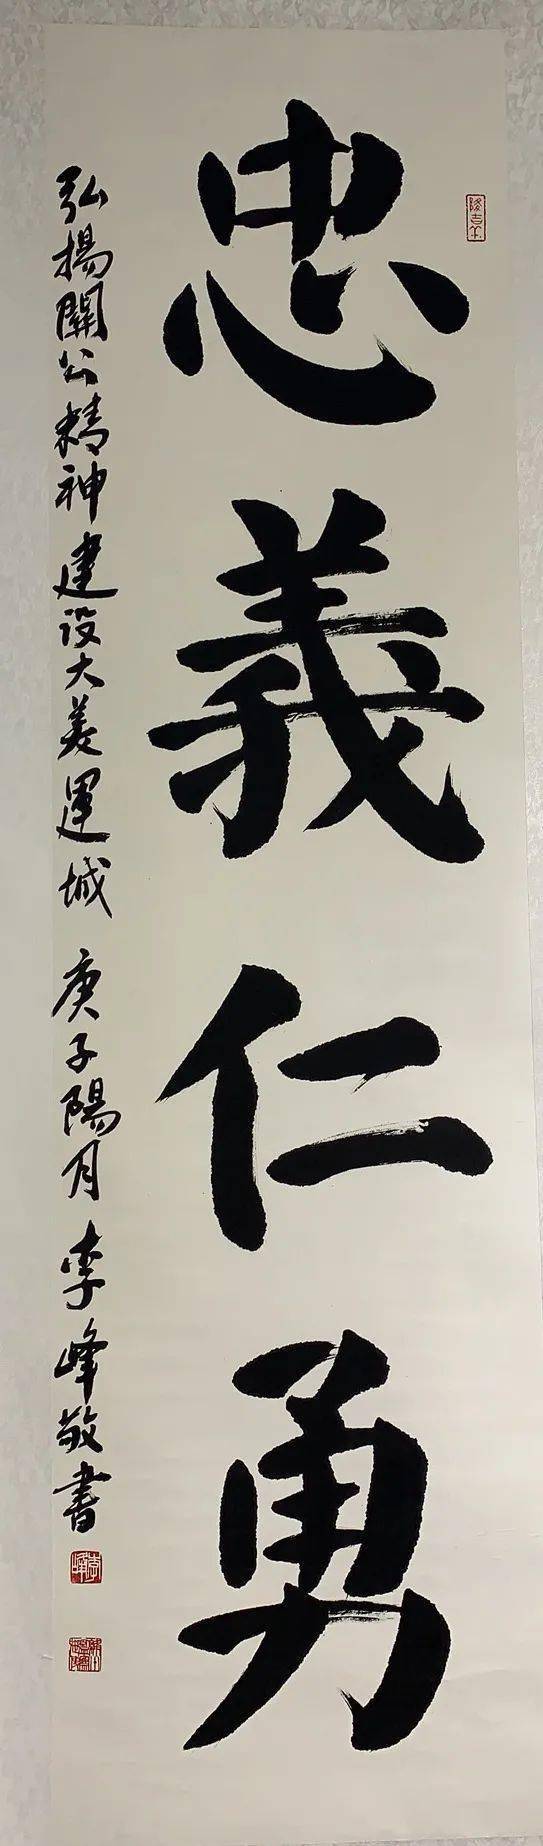 忠義仁勇
弘揚關公精神建设大美運城 庚子陽月 李峰敬書
李峰